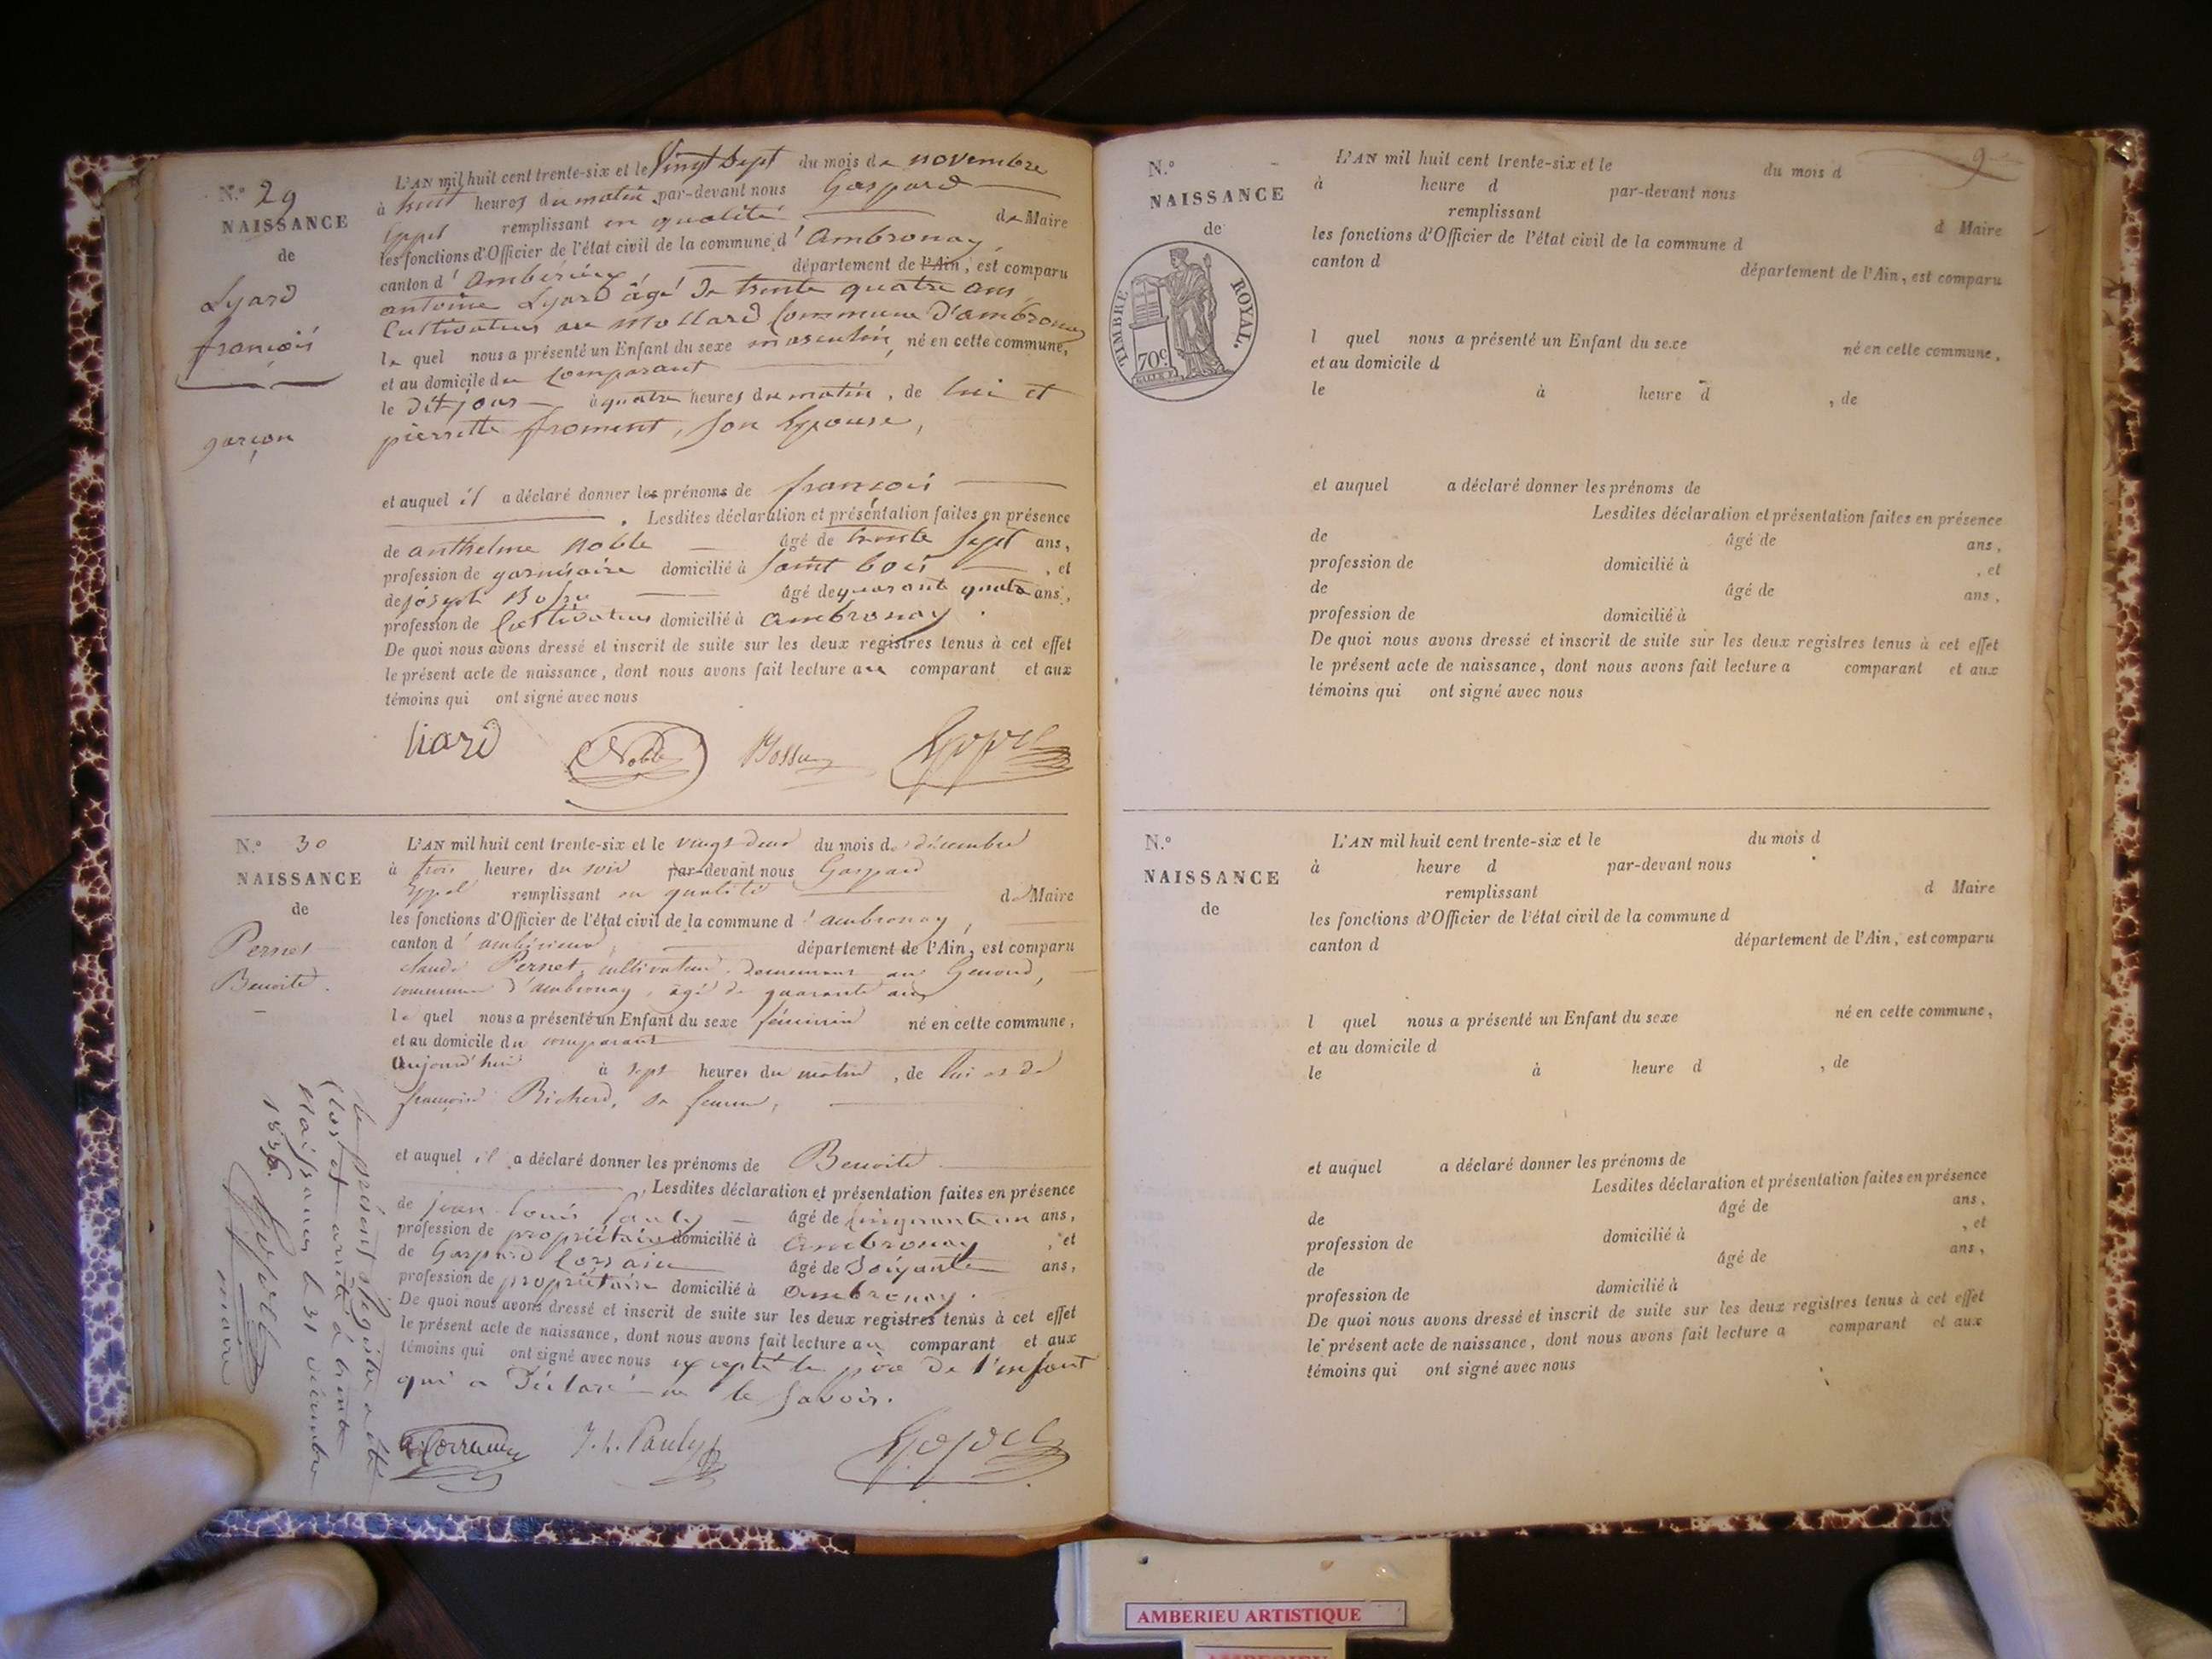 N.º 29
NAISSANCE
de
Lyard
françois
garçon
L'AN mil huit cent trente-six et le Vingt Sept du mois de novembre
à huit heures du matin par-devant nous Gaspard
Eppel remplissant en qualité de Maire
les fonctions d'Officier de l'état civil de la commune d'Ambronay,
canton d'Ambérieux département de l'Ain, est comparu
antoine Lyard âgé De trente quatre ans
Cultivateur au Mollard Commune D'ambronay
le quel nous a présenté un Enfant du sexe masculin, né en cette commune,
et au domicile du Comparant
le Dit jour à quatre heures du matin, de lui et
pierrette froment, Son Epouse,
et auquel il a déclaré donner les prénoms de françois
. Lesdites déclaration et présentation faites en présence
de anthelme Noble âgé de trente Sept ans,
profession de garnisaire domicilié à Saint , et
de joseph Bossu âgé de quarant quatre ans,
profession de Cultivateur domicilié à Ambronay.
De quoi nous avons dressé et inscrit de suite sur les deux registres tenus à cet effet
le présent acte de naissance, dont nous avons fait lecture au comparant et aux
témoins qui ont signé avec nous
liard Noble Bossu Eppel
N.º 30
NAISSANCE
de
Pernet
Benoite.
L'AN mil huit cent trente-six et le vingt-deux du mois de décembre
à trois heures du soir par-devant nous Gaspard
Eppel remplissant en qualité de Maire
les fonctions d'Officier de l'état civil de la commune d'ambronay,
canton d'ambérieux, département de l'Ain, est comparu
claude Pernet, cultivateur demeurant au Genoud,
commune d'ambronay, âgé de quarante ans
le quel nous a présenté un Enfant du sexe féminin né en cette commune,
et au domicile du comparant
aujourd'hui à sept heures du matin, de lui et de
françoise Richerd, sa femme,
et auquel il a déclaré donner les prénoms de Benoite.
, Lesdites déclaration et présentation faites en présence
de jean Louis Pauly âgé de Cinquante un ans,
profession de propriétaire domicilié à Ambronay, et
de Gaspard Corrain âgé de Soixante ans,
profession de propriétaire domicilié à Ambronay.
De quoi nous avons dressé et inscrit de suite sur les deux registres tenus à cet effet
le présent acte de naissance, dont nous avons fait lecture au comparant et aux
témoins qui ont signé avec nous excepté le père De l'enfant
qui a Déclaré ne le Savoir.
J. L. Pauly Eppel
Le présent Registre a été
Clos et arrêté à trente
Naissances le 31 décembre
1836.
Eppel
maire
9
N.º
NAISSANCE
de
TIMBRE ROYAL.
70c.
L'AN mil huit cent trente-six et le du mois d
à heure d par-devant nous
remplissant d Maire
les fonctions d'Officier de l'état civil de la commune d
canton d département de l'Ain, est comparu
l quel nous a présenté un Enfant du sexe né en cette commune,
et au domicile d
le à heure d , de
et auquel a déclaré donner les prénoms de
Lesdites déclaration et présentation faites en présence
de âgé de ans,
profession de domicilié à , et
de âgé de ans,
profession de domicilié à
De quoi nous avons dressé et inscrit de suite sur les deux registres tenus à cet effet
le présent acte de naissance, dont nous avons fait lecture a comparant et aux
témoins qui ont signé avec nous
N.º
NAISSANCE
de
L'AN mil huit cent trente-six et le du mois d
à heure d par-devant nous
remplissant d Maire
les fonctions d'Officier de l'état civil de la commune d
canton d département de l'Ain, est comparu
l quel nous a présenté un Enfant du sexe né en cette commune,
et au domicile d
le à heure d , de
et auquel a déclaré donner les prénoms de
Lesdites déclaration et présentation faites en présence
de âgé de ans,
profession de domicilié à , et
de âgé de ans,
profession de domicilié à
De quoi nous avons dressé et inscrit de suite sur les deux registres tenus à cet effet
le présent acte de naissance, dont nous avons fait lecture a comparant et aux
témoins qui ont signé avec nous
AMBERIEU ARTISTIQUE